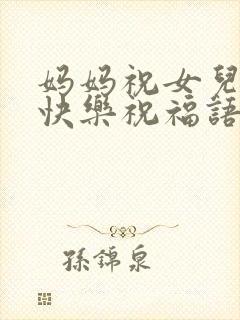 妈妈祝女兒
快樂祝福語
孫錦泉